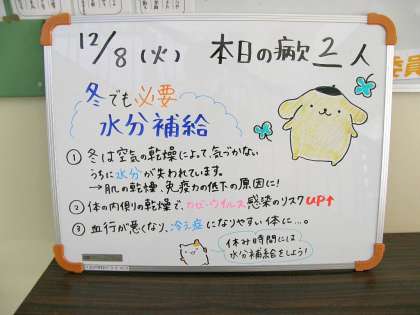 12/8(火) 本日の病欠 2人
冬でも必要
水分補給
① 冬は空気の乾燥によって、気づかない
うちに水分が失われています。
→肌の乾燥、免疫力の低下の原因に!
② 体の内側の乾燥で、かぜ・ウイルス感染のリスクUP↑
③ 血行が悪くなり、冷え症になりやすい体に…。
休み時間には
水分補給をしよう!
委員